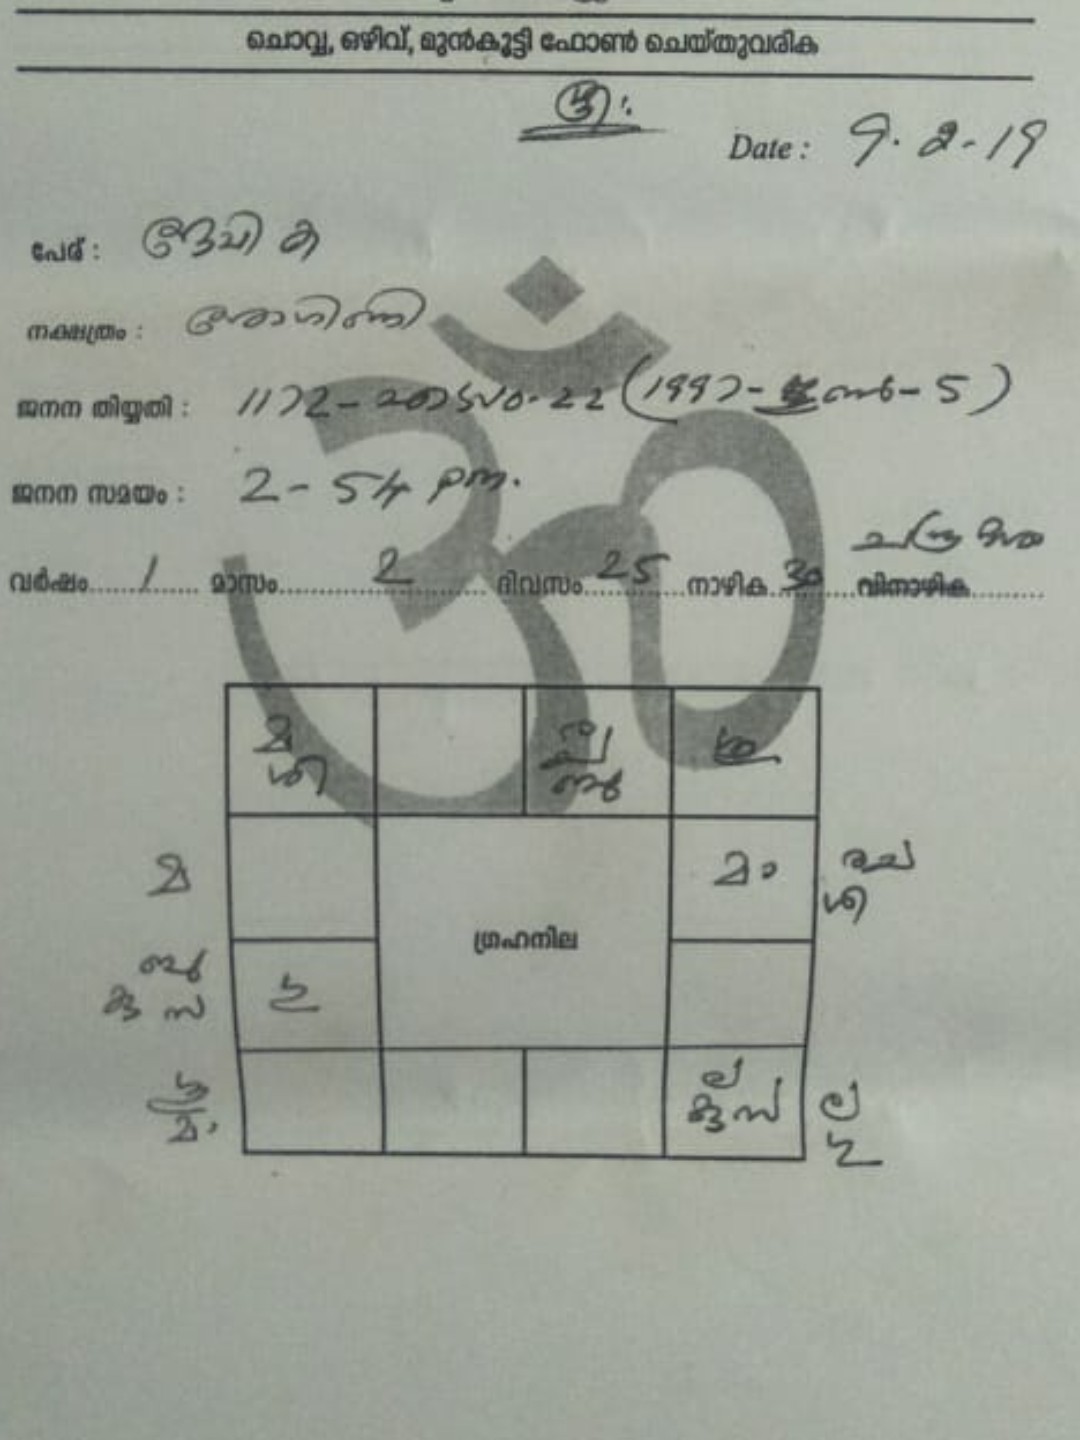 ചൊവ്വ, ഒഴിവ്, മുൻകൂട്ടി ഫോൺ ചെയ്തുവരിക
ശ്രീ:
Date : 9.2-19
പേര് : ദേവിക
നക്ഷത്രം : രോഹിണി
ജനന തിയ്യതി : 1172-ഇടവം-22 (1997-ജൂൺ-5)
ജനന സമയം : 2-54 pm.
വർഷം 1 മാസം 2 ദിവസം 25 നാഴിക 30 വിനാഴിക
മ
ശി
ബു
മ
മാ
ര ച
ശി
ഗ്രഹനില
ബു
കു സ
മാ
ല
കു സ
ല